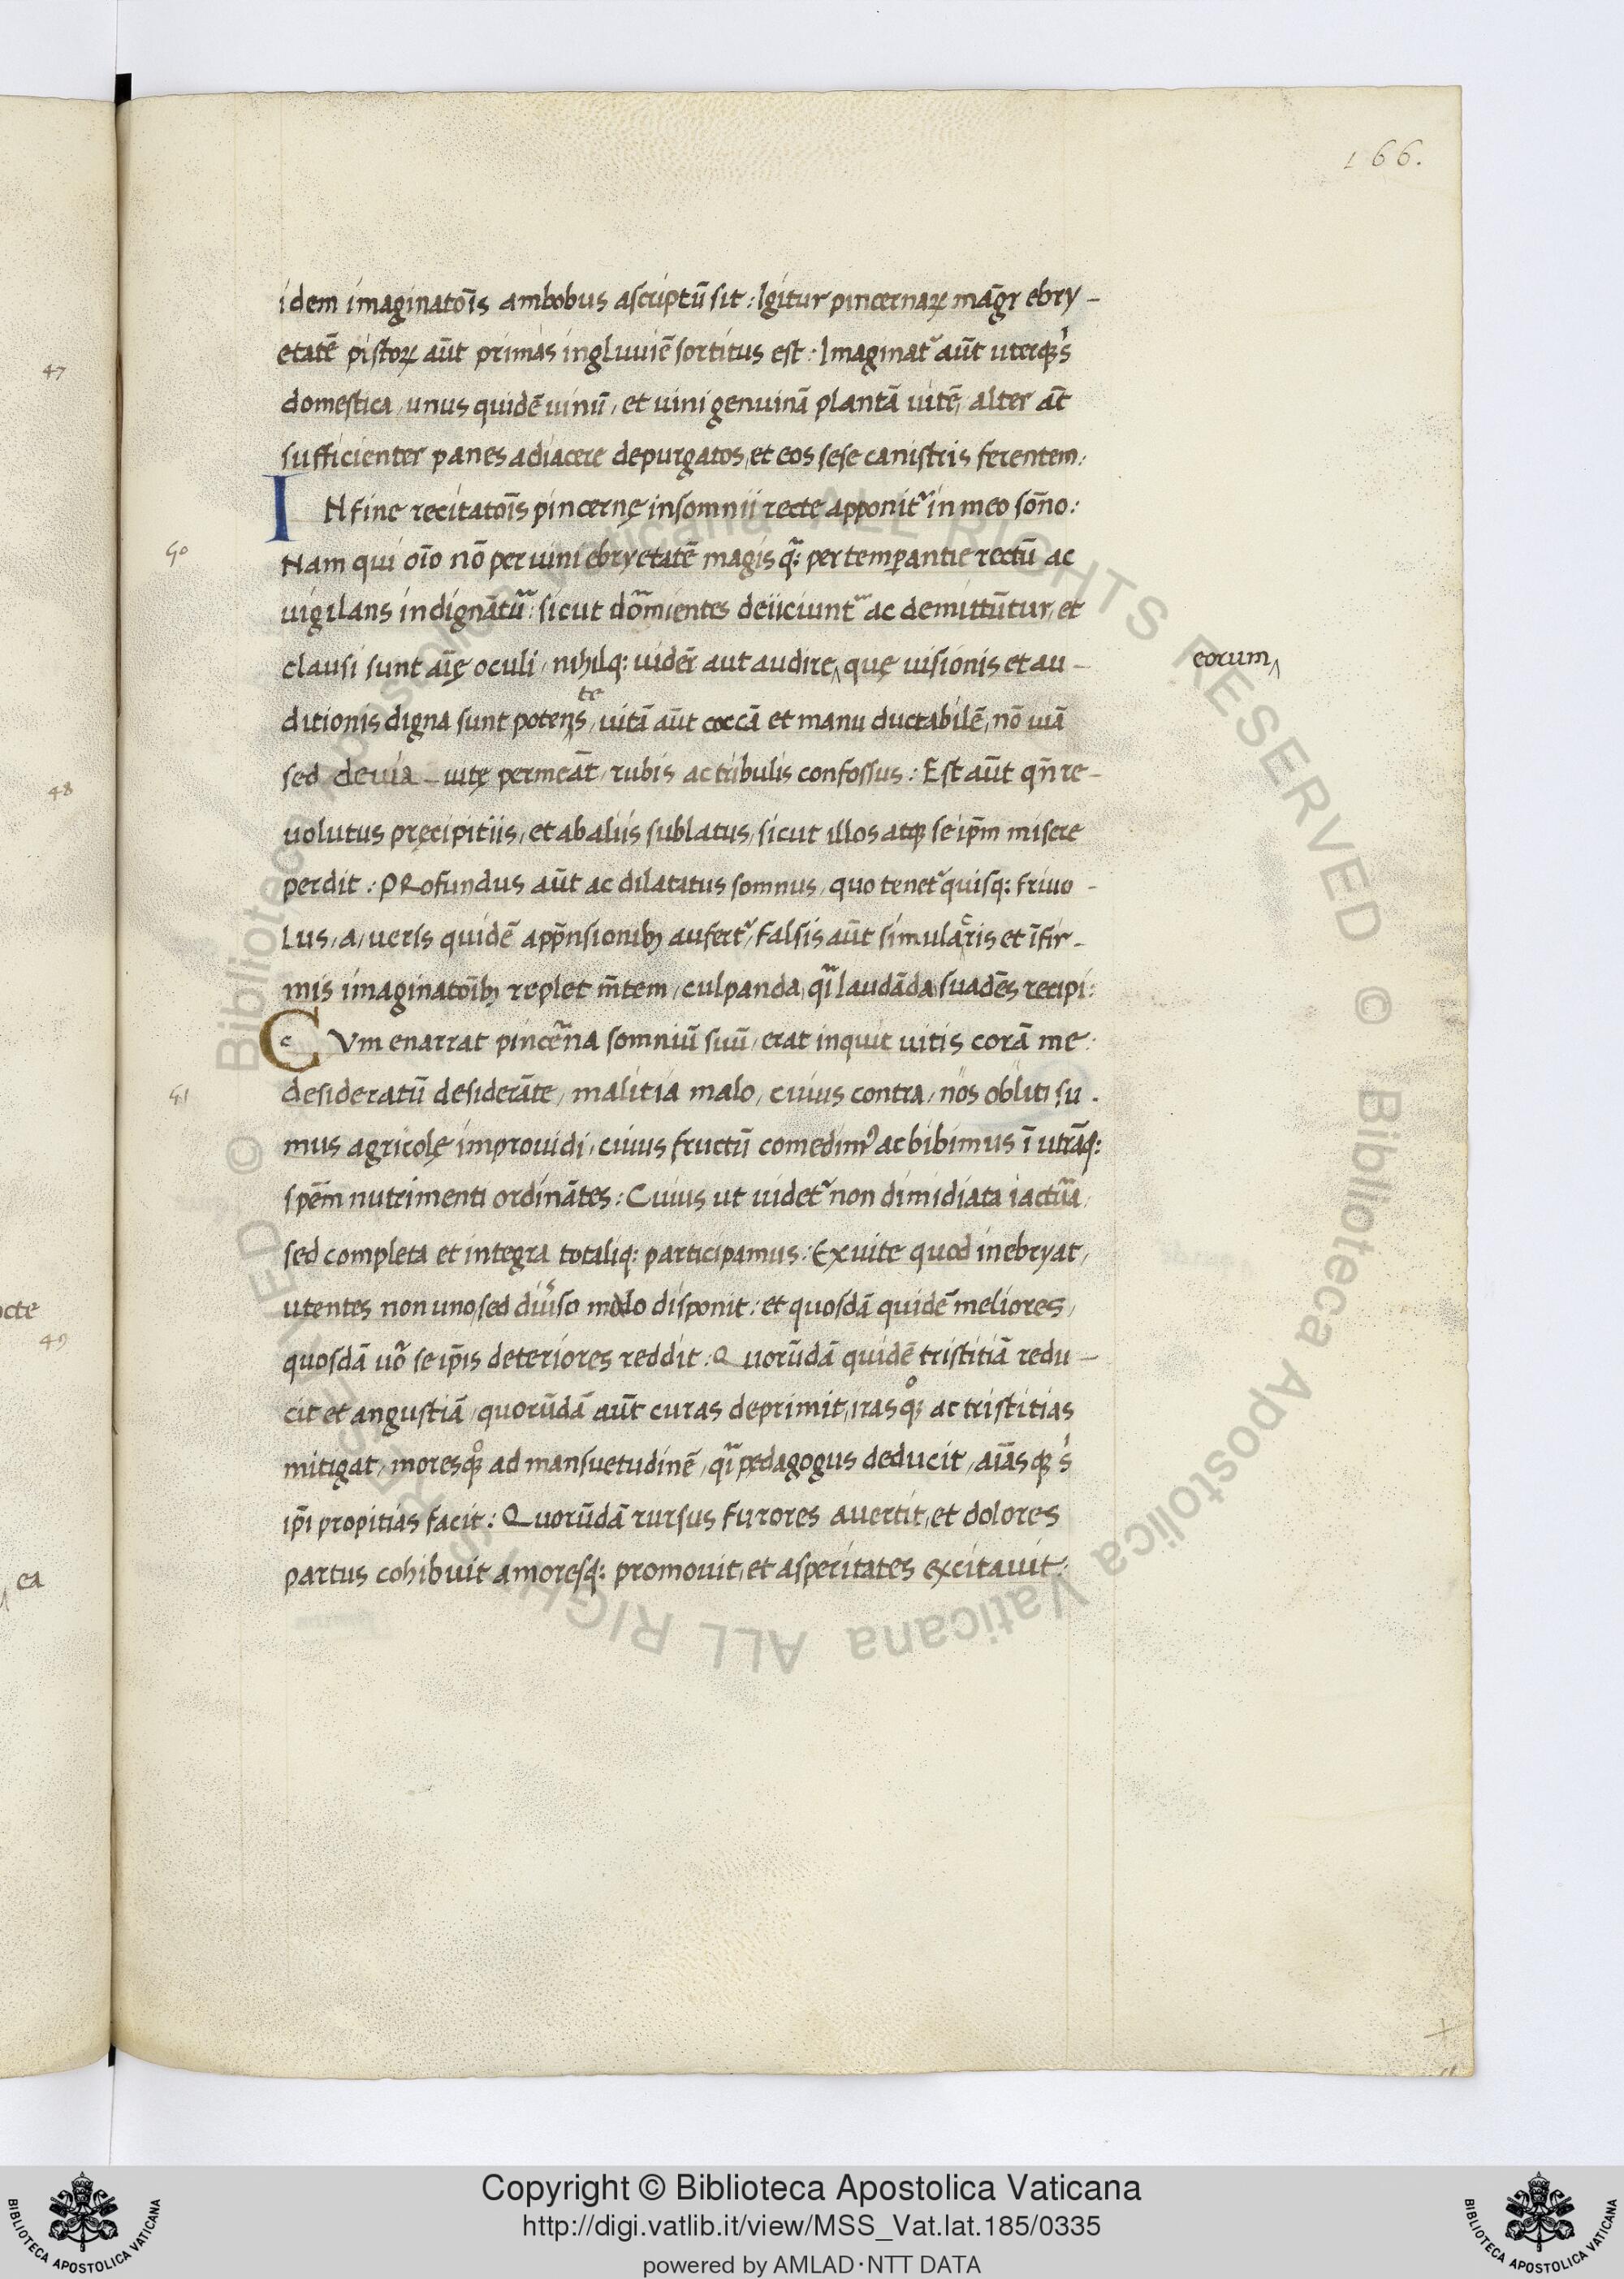 166.
idem imaginatōis ambobus ascriptū sit: Igitur pincernaꝝ māgr ebry-
etatē pistoꝝ aūt primas ingluviē sortitus est: Imaginat᷑ aūt uterqꝫ s
domestica, unus quidē uinū, et uini genuinā plantā uitē, alter āt
sufficienter panes adiacere depurgatos, et eos sese canistris ferentem:
IN fine recitatōis pincernę insomnii recte apponit᷑ in meo som̄no:
50
Nam qui oīo nō per uini ebryetatē magis qꝫ per temꝑantie rectū ac
uigilans indignātu᷑: sicut do᷑mientes deiiciunt᷑ ac demittūtur, et
clausi sunt aīę oculi, nihilqꝫ uider̄ aut audire‸ quę uisionis et au-
eorum‸
ditionis digna sunt potens‸te, uitā aūt coecā et manu ductabilē, nō uiā
sed deuia - uitę permeāt, rubis ac tribulis confossus: Est aūt qn̄ re-
uolutus pręcipitiis, et ab aliis sublatus, sicut illos atqꝫ se ip̄m misere
perdit: PRofundus aūt ac dilatatus somnus, quo tenet᷑ quisqꝫ friuo-
lus, a, ueris quidē app̄nsionibꝫ aufert᷑, falsis aūt simulac̄ris et īfir-
mis imaginatōibꝫ replet m̄tem, culpanda, q᷑i laudāda suadēs recipi:
CVm enarrat pince᷑na somniū suū, erat inquit uitis corā me:
51
desideratū desiderāte, malitia malo, cuius contra, nos obliti su-
mus agricolę improuidi, cuius fructū comedimꝰ ac bibimus ī utrāqꝫ
spēm nutrimenti ordinātes: Cuius ut uidet᷑ non dimidiata iactu᷑a,
sed completa et integra totaliqꝫ participamus: Ex uite quod inebryat,
utentes non uno, sed diu᷑so modo disponit: et quosdā quidē meliores,
quosdā uo᷑ se ip̄is deteriores reddit: Quorūdā quidē tristitiā redu-
cit et angustiā, quorūdā aūt curas deprimit, irasqꝫ ac tristitias
mitigat, moresqꝫ ad mansuetudinē, q᷑i pędagogus deducit, aīasqꝫ s
ip̄i propitias facit: Quorūdā rursus furores auertit, et dolores
partus cohibuit amoresqꝫ promouit, et asperitates excitauit:
47
48
octe
49
‸ea
© Biblioteca Apostolica Vaticana ALL RIGHTS RESERVED © Biblioteca Apostolica Vaticana ALL RIGHTS RESERVED
Copyright © Biblioteca Apostolica Vaticana
http://digi.vatlib.it/view/MSS_Vat.lat.185/0335
powered by AMLAD·NTT DATA
BIBLIOTECA APOSTOLICA VATICANA
BIBLIOTECA APOSTOLICA VATICANA